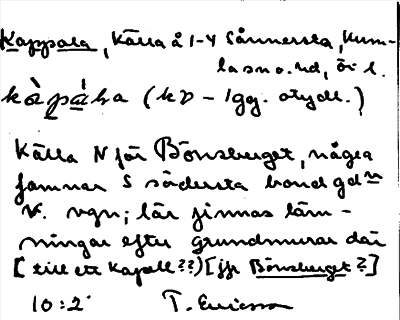 Kappala, Källa å 1-4 Sånnersta, Kum-
la sn o. hd, Ör l.
kàpál̨a (kv - 1 gg. otydl.)
Källa N för Bönsberget, några
famnar S södersta bondgdn
V. vgn; lär finnas läm-
ningar efter grundmurar där
[till ett kapell??) [jfr Bönsberget?]
10:2 T. Ericsson